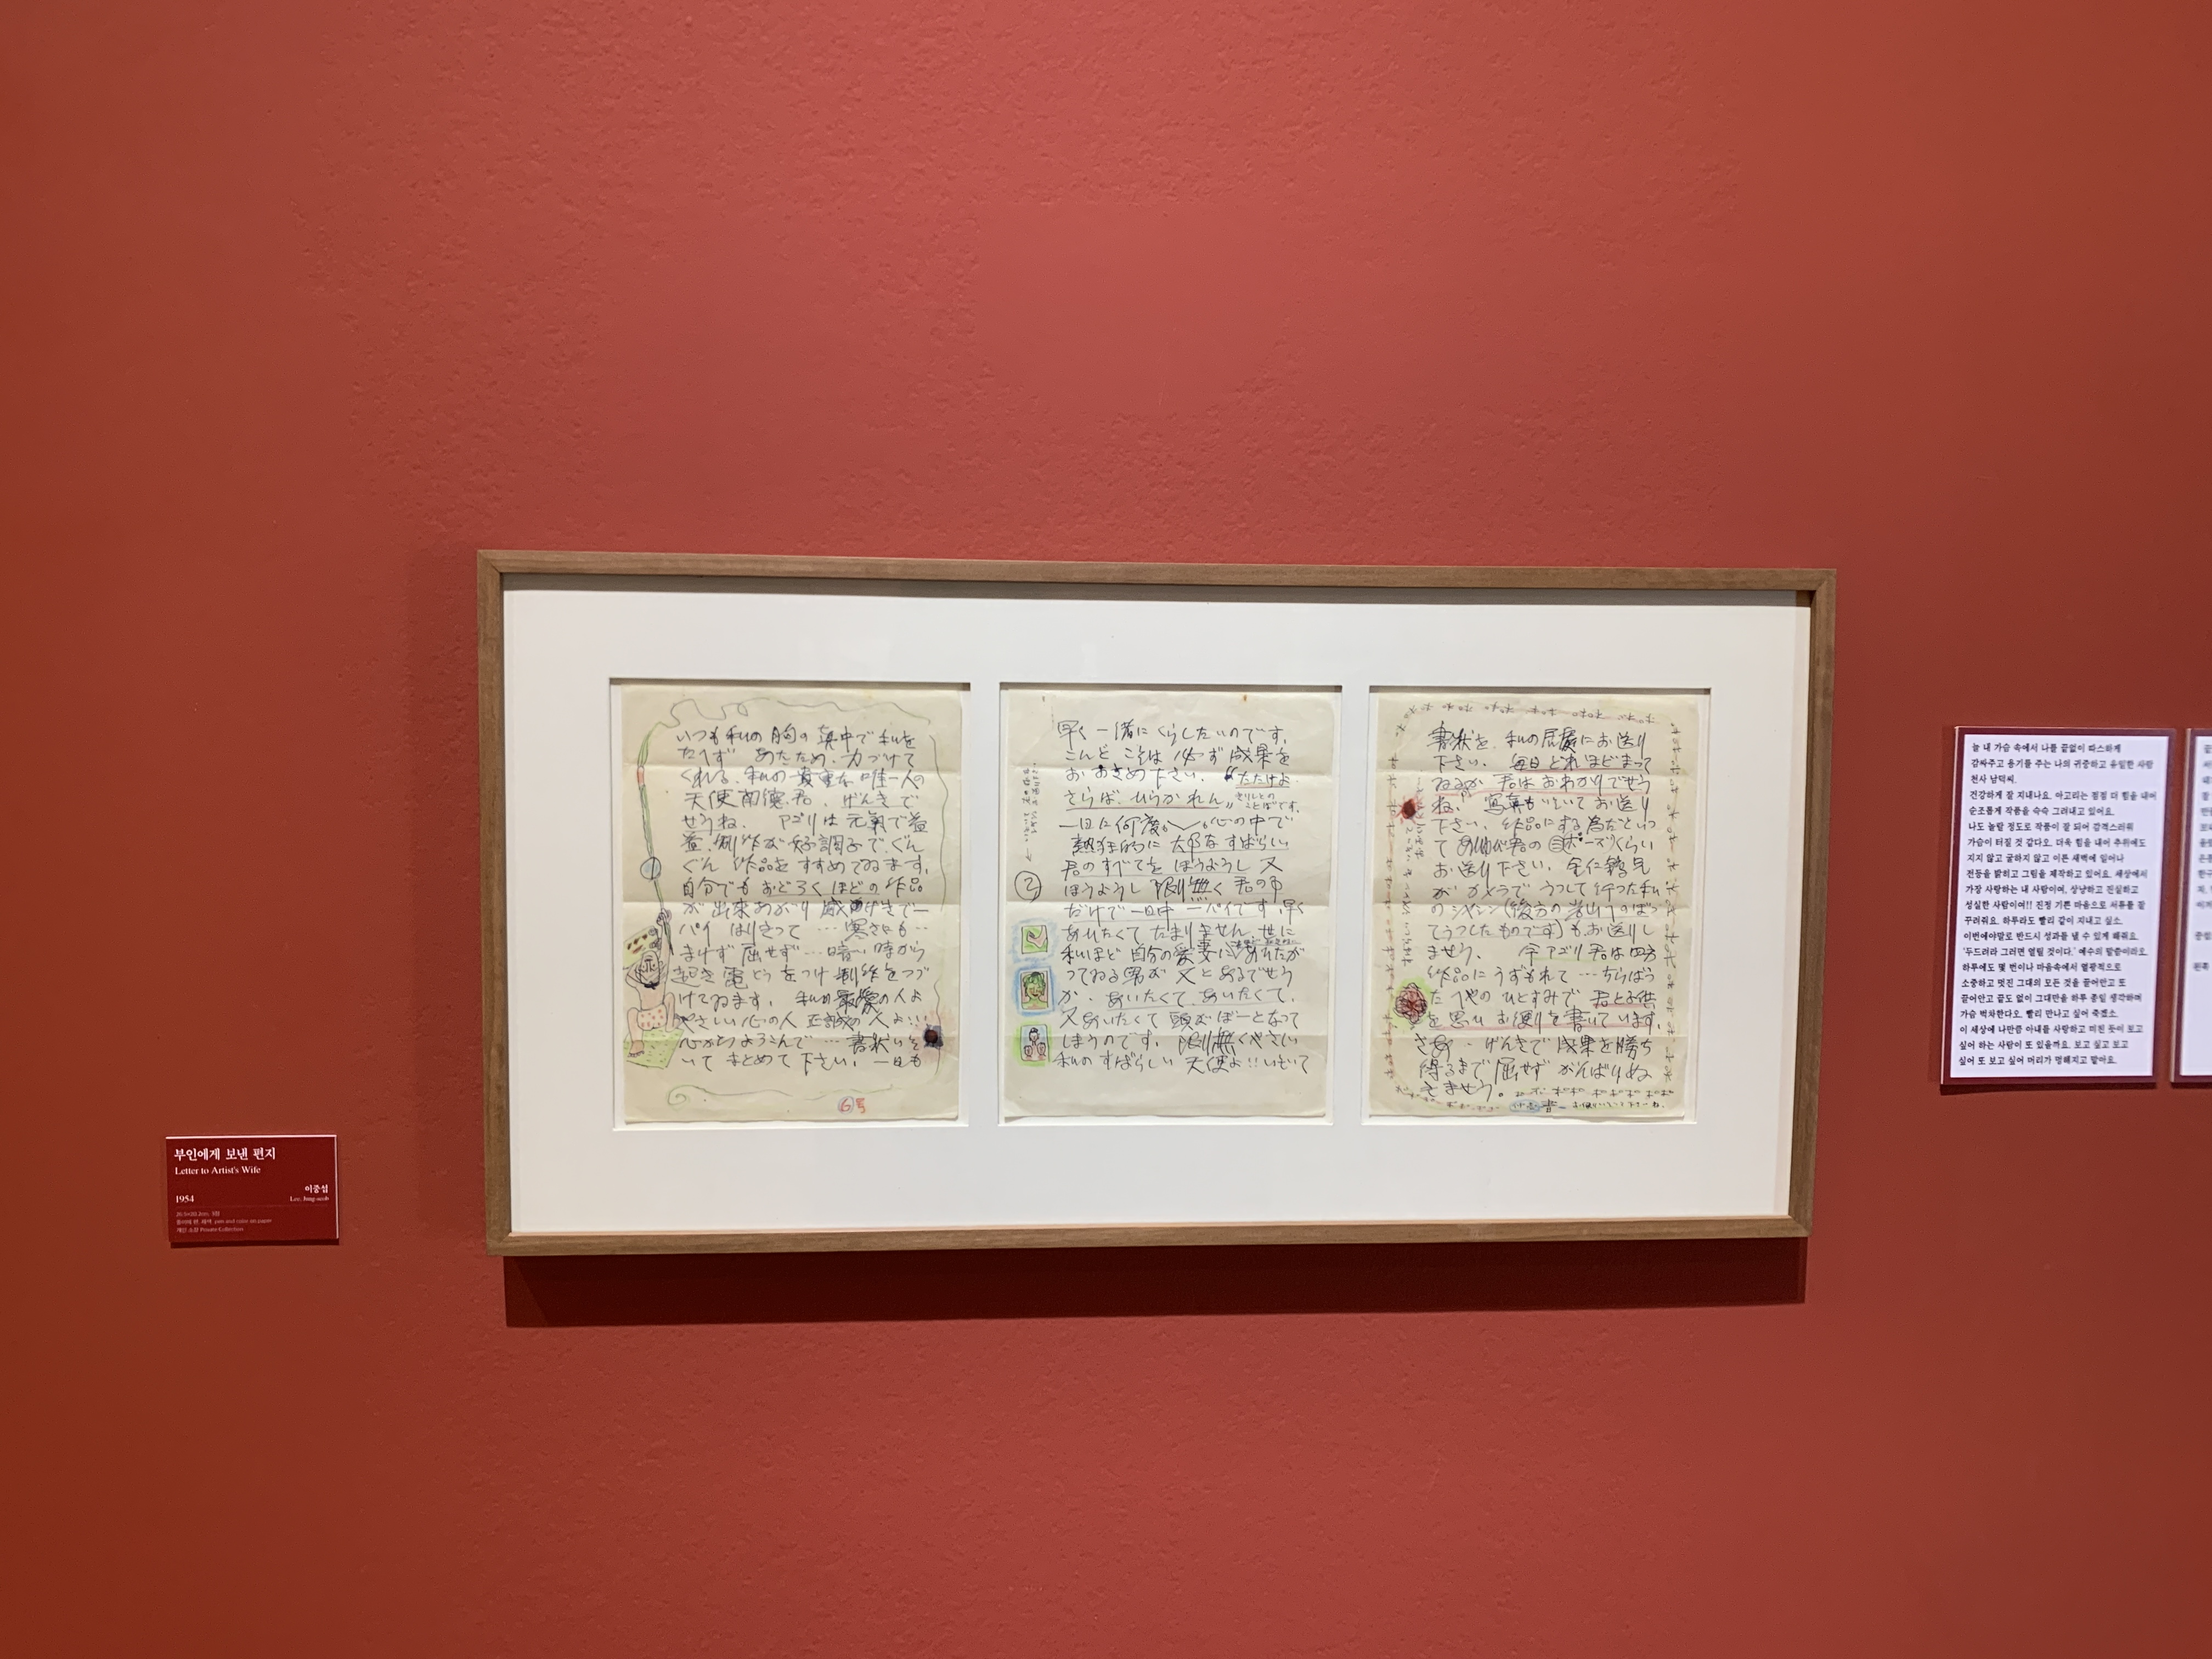 부인에게 보낸 편지
Letter to Artist's Wife
이중섭
1954
Lee, Jung-seob
종이에 펜, 채색 pen and color on paper
개인 소장 Private Collection
いつも私の胸の真中で私を
たえず あたため.力づけて
くれる.私の貴重な唯一人の
天使南德君.げんきで
せうね. アゴリは元氣で益
益.制作が好調子で.ぐん
ぐん 作品をすすめてゐます.
自分でもおどろくほどの作品
が出来あがり 感げきで一
パイ はりきって…寒さにも…
まけず 屈せず…暗い時から
起き電とうをつけ制作をつづ
けてゐます. 私の最愛の人よ
やさしい心の人 正誠の人よ!!
心からよろこんで…書状いそ
いで まとめて下さい. 一日も
6号
早く一緒にくらしたいのです.
こんど こそは 必ず成果を
おおさめ下さい. "たたけよ
さらば.ひらかれん"
きりしとの
ことばです.
一日に何度も 心の中で
熱狂的に 大切なすばらしい
君のすべてを ほうようし 又
ほうようし 限り無く君の事
だけで一日中 一パイです.早く
あいたくて たまりません.世に
私ほど 自分の愛妻に あいたが
ってゐる男が 又とあるでせう
か.あいたくて あいたくて.
又あいたくて 頭がぼーとなって
しまうのです. 限り無くやさしい
私のすばらしい 天使よ!!いそいで
2
書状を.私の居處にお送り
下さい. 毎日どれほどまって
ゐるか 君はおわかりでせう
ね. 写真もいそいでお送り
下さい. 作品にする為だといっ
て 君の ポーズくらい
お送り下さい. 兄
が カメラで うつして行った私
のシャシン(後方の
てうつしたものです)も お送りし
ませう. 今アゴリ君は四方
作品にうずもれて…ちらばっ
た へやの ひとすみで 君と子供
を思い お便りを書いています.
さあ… げんきで 成果を勝ち
得るまで 屈せず がんばりぬ
きませう。
늘 내 가슴 속에서 나를 끝없이 따스하게
감싸주고 용기를 주는 나의 귀중하고 유일한 사람
천사 남덕씨.
건강하게 잘 지내나요. 아고리는 점점 더 힘을 내어
순조롭게 작품을 슥슥 그려내고 있어요.
나도 놀랄 정도로 작품이 잘 되어 감격스러워
가슴이 터질 것 같다오. 더욱 힘을 내어 추위에도
지지 않고 굴하지 않고 이른 새벽에 일어나
전등을 밝히고 그림을 제작하고 있어요. 세상에서
가장 사랑하는 내 사람이여, 상냥하고 진실하고
성실한 사람이여!! 진정 기쁜 마음으로 서류를 잘
꾸려줘요. 하루라도 빨리 같이 지내고 싶소.
이번에야말로 반드시 성과를 낼 수 있게 해줘요.
'두드려라 그러면 열릴 것이다.' 예수의 말씀이라오.
하루에도 몇 번이나 마음속에서 열광적으로
소중하고 멋진 그대의 모든 것을 끌어안고 또
끌어안고 끝도 없이 그대만을 하루 종일 생각하며
가슴 벅차한다오. 빨리 만나고 싶어 죽겠소.
이 세상에 나만큼 아내를 사랑하고 미친 듯이 보고
싶어 하는 사람이 또 있을까요. 보고 싶고 보고
싶어 또 보고 싶어 머리가 멍해지고 말아요.